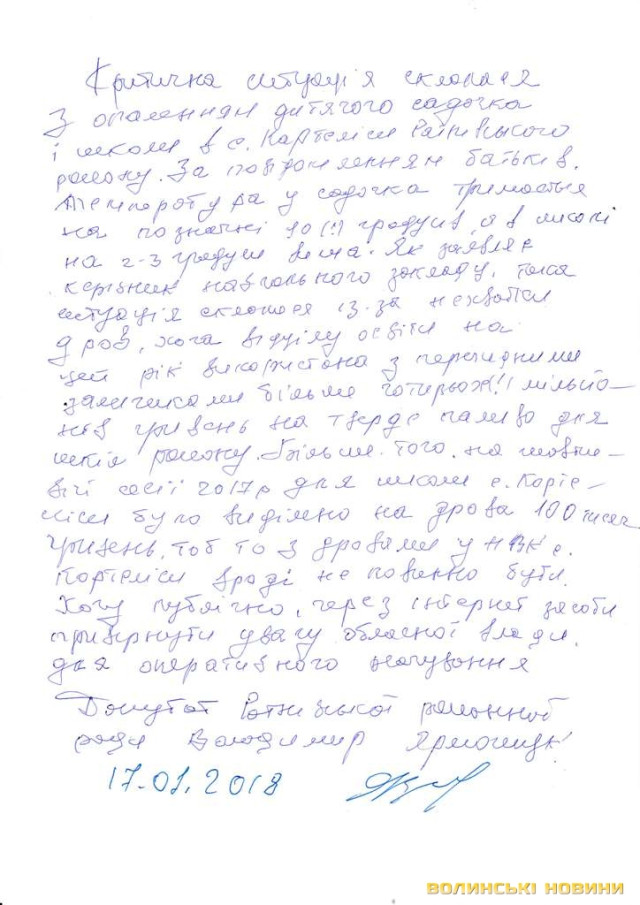 Критична ситуація склалася
з опаленням дитячого садочка
і школи в с. Кортеліси Ратнівського
району. За повідомленням батьків.
температура у садочка тримається
на позначці 10 (!) градусів, а в школі
на 2-3 градуси вища. Як заявляє
керівник навчального закладу, така
ситуація склалася із-за нехватки
дров, хоча відділу освіти на
цей рік використана з перехідними
залишками більше чотирьох (!) мільйо-
нів гривень на тверде паливо для
шкіл району. Більше того, на
сесії 2017р для школи с. Корте-
ліси було виділено на дрова 100 тисяч
гривень, тобто з дровами у НВК с.
Кортеліси вроді не повинно бути.
Хочу публічно, через інтернет засоби
привернути увагу обласної влади.
для оперативного реагування
Депутат Ратнівської районної
ради Володимир
17.01.2018
ВОЛИНСЬКІ НОВИНИ